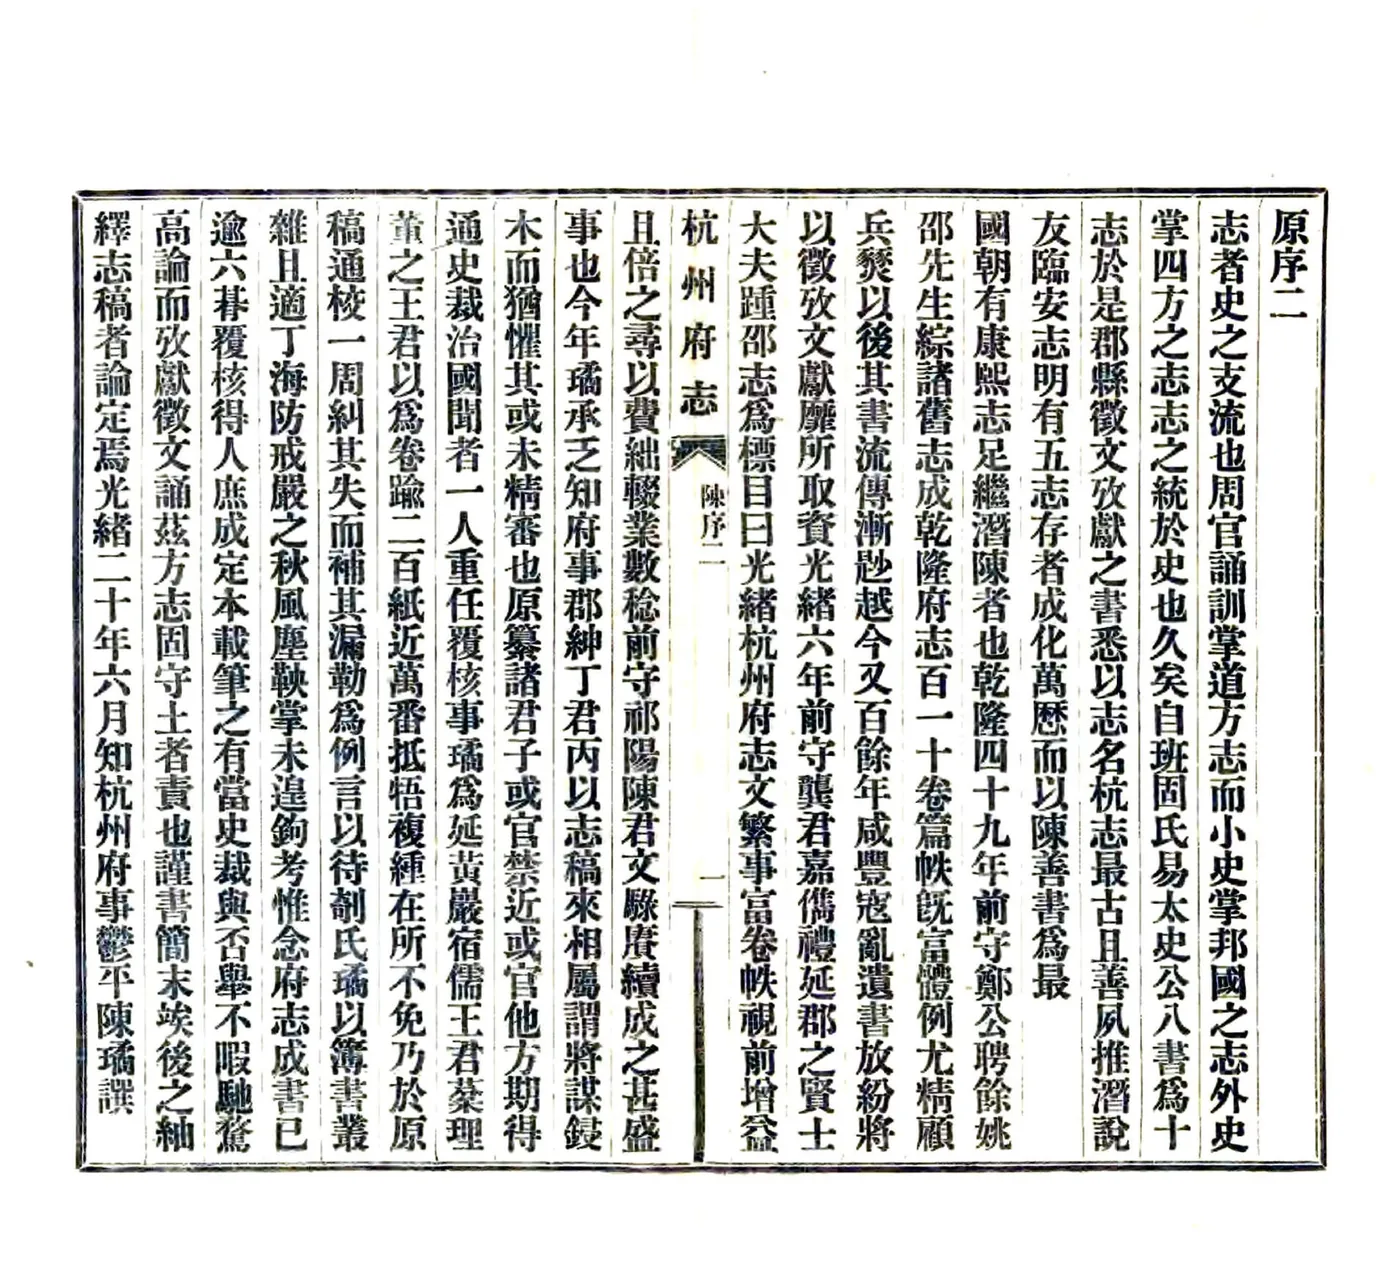 原序二
志者史之支流也周官誦訓掌道方志而小史掌邦國之志外史
掌四方之志志之統於史也久矣自班固氏易太史公八書爲十
志於是郡縣徵文攷獻之書悉以志名杭志最古且善夙推潛說
友臨安志明有五志存者成化萬歷而以陳善書爲最
國朝有康熙志足繼潛陳者也乾隆四十九年前守鄭公聘餘姚
邵先生綜諸舊志成乾隆府志百一十卷篇帙既富體例尤精顧
兵燹以後其書流傳漸尠越今又百餘年咸豐寇亂遺書放紛將
以徵攷文獻靡所取資光緒六年前守龔君嘉儁禮延郡之賢士
大夫踵邵志爲標目曰光緒杭州府志文繁事富卷帙視前增益
杭州府志
陳序二
一
且倍之尋以費絀輟業數稔前守祁陽陳君文騄賡續成之甚盛
事也今年璚承乏知府事郡紳丁君丙以志稿來相屬謂將謀鋟
木而猶懼其或未精審也原纂諸君子或官禁近或官他方期得
通史裁治國聞者一人重任覆核事璚爲延黃巖宿儒王君棻理
董之王君以爲卷踰二百紙近萬番抵牾複緟在所不免乃於原
稿通校一周糾其失而補其漏勒爲例言以待剞氏璚以簿書叢
雜且適丁海防戒嚴之秋風塵鞅掌未遑鉤考惟念府志成書已
逾六朞覆核得人庶成定本載筆之有當史裁與否舉不暇馳騖
高論而攷獻徵文誦茲方志固守土者責也謹書簡末竢後之紬
繹志稿者論定焉光緒二十年六月知杭州府事鬱平陳璚譔